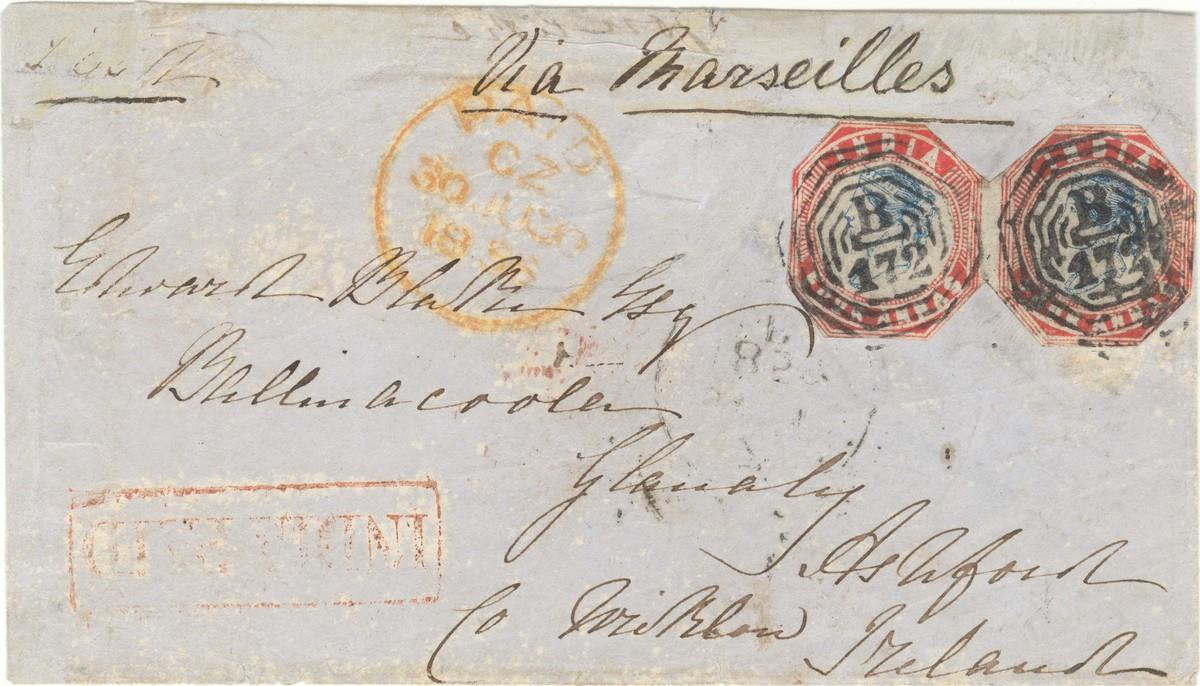 Via Marseilles
PAID
CZ
30 AUG
18
INDIA
B
172
FOUR ANNAS
INDIA
B
172
FOUR ANNAS
Edward Blake Esq
Ballinacoola
Glanaly
Ashford
Co Wicklow
Ireland
INDIA PAID